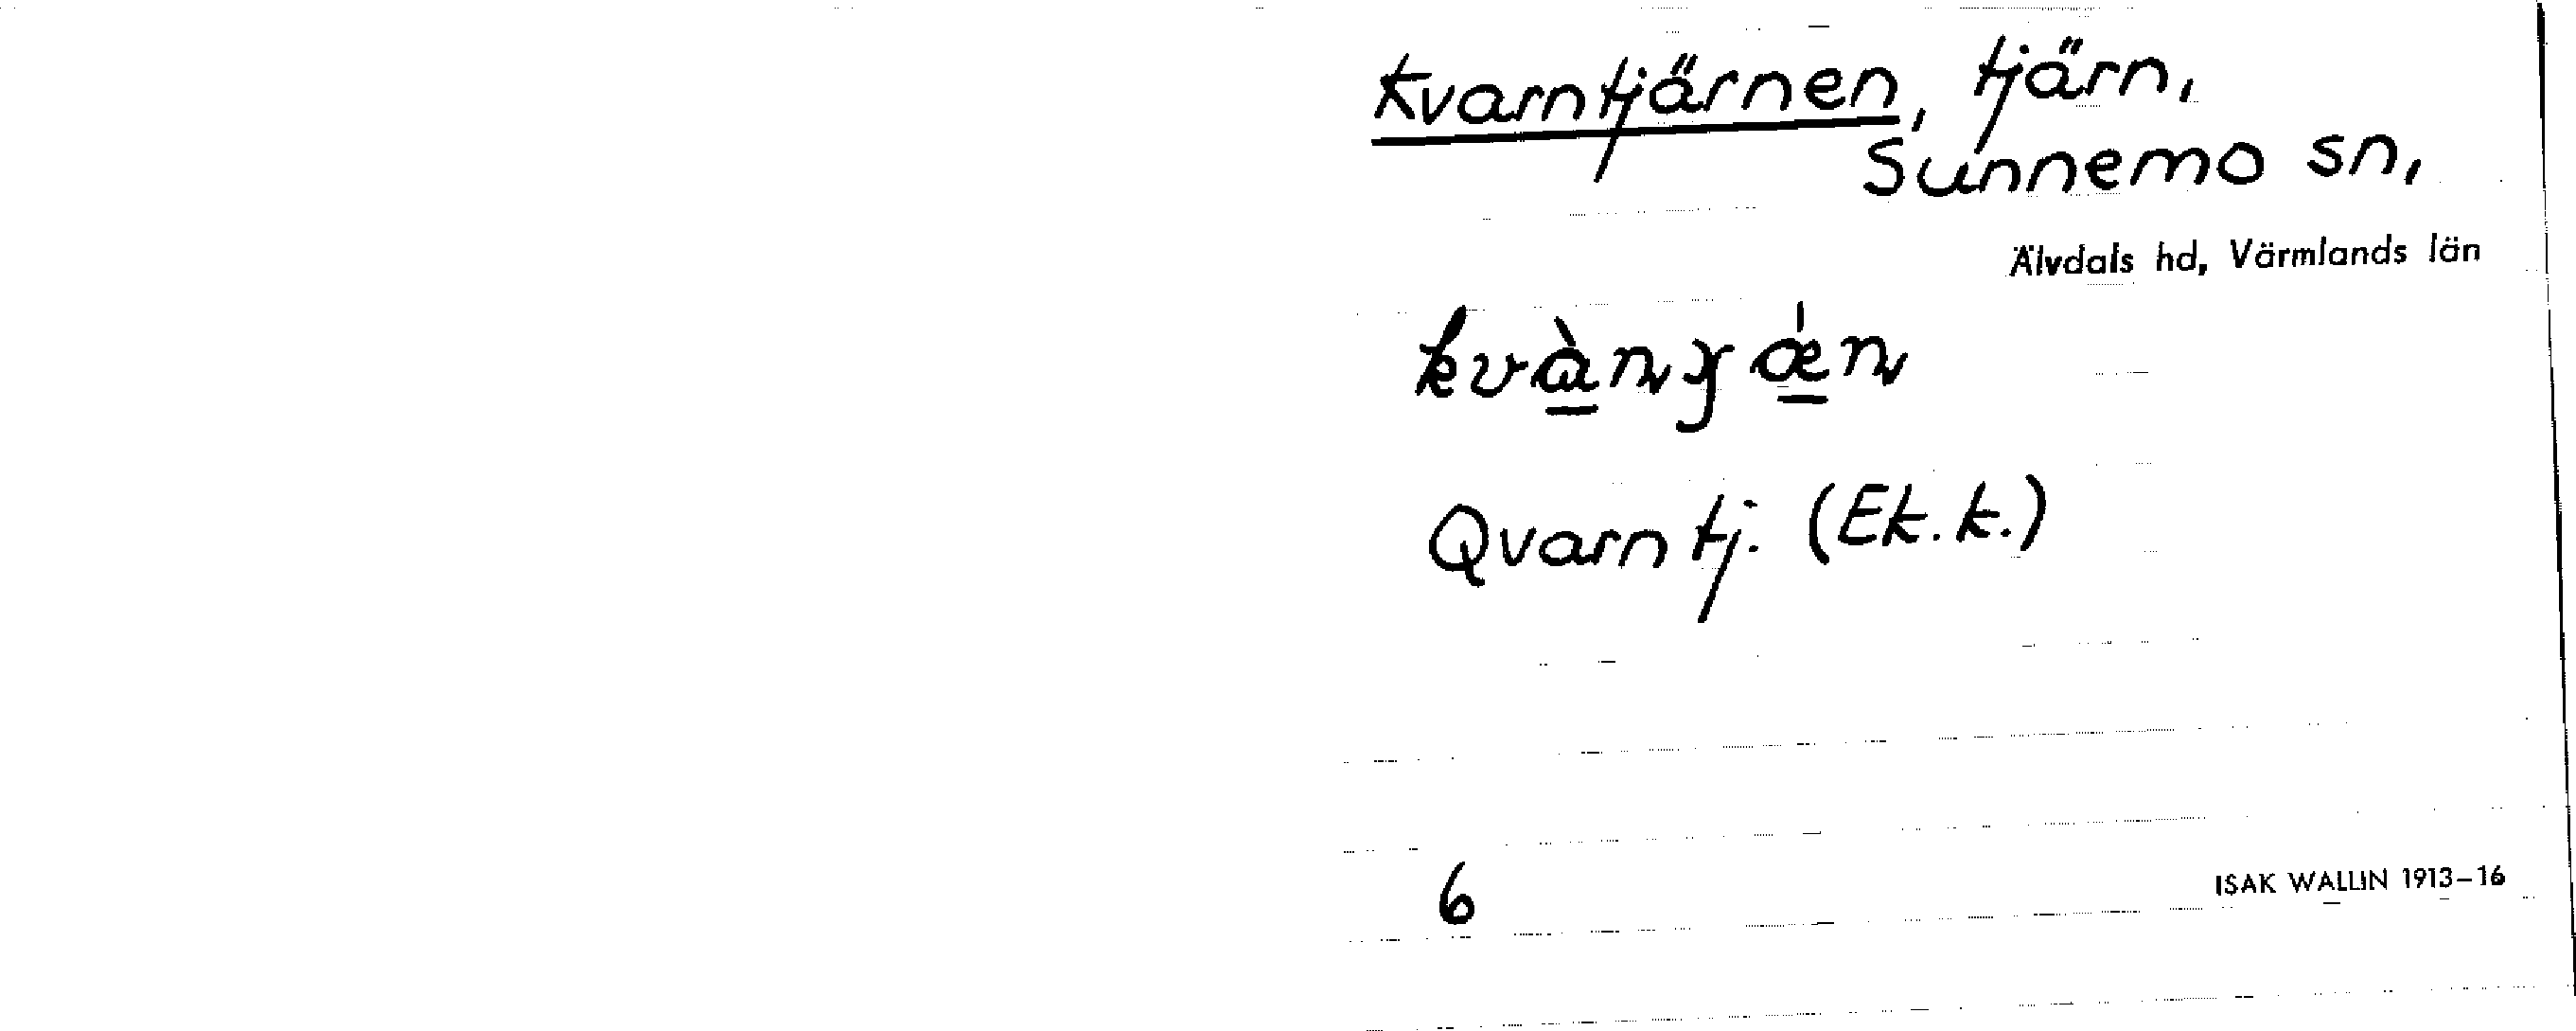 Kvarntjärnen, tjärn,
Sunnemo sn,
Älvdals hd, Värmlands län
Qvarn tj. (Ek. k.)
6
ISAK WALLIN 1913–16